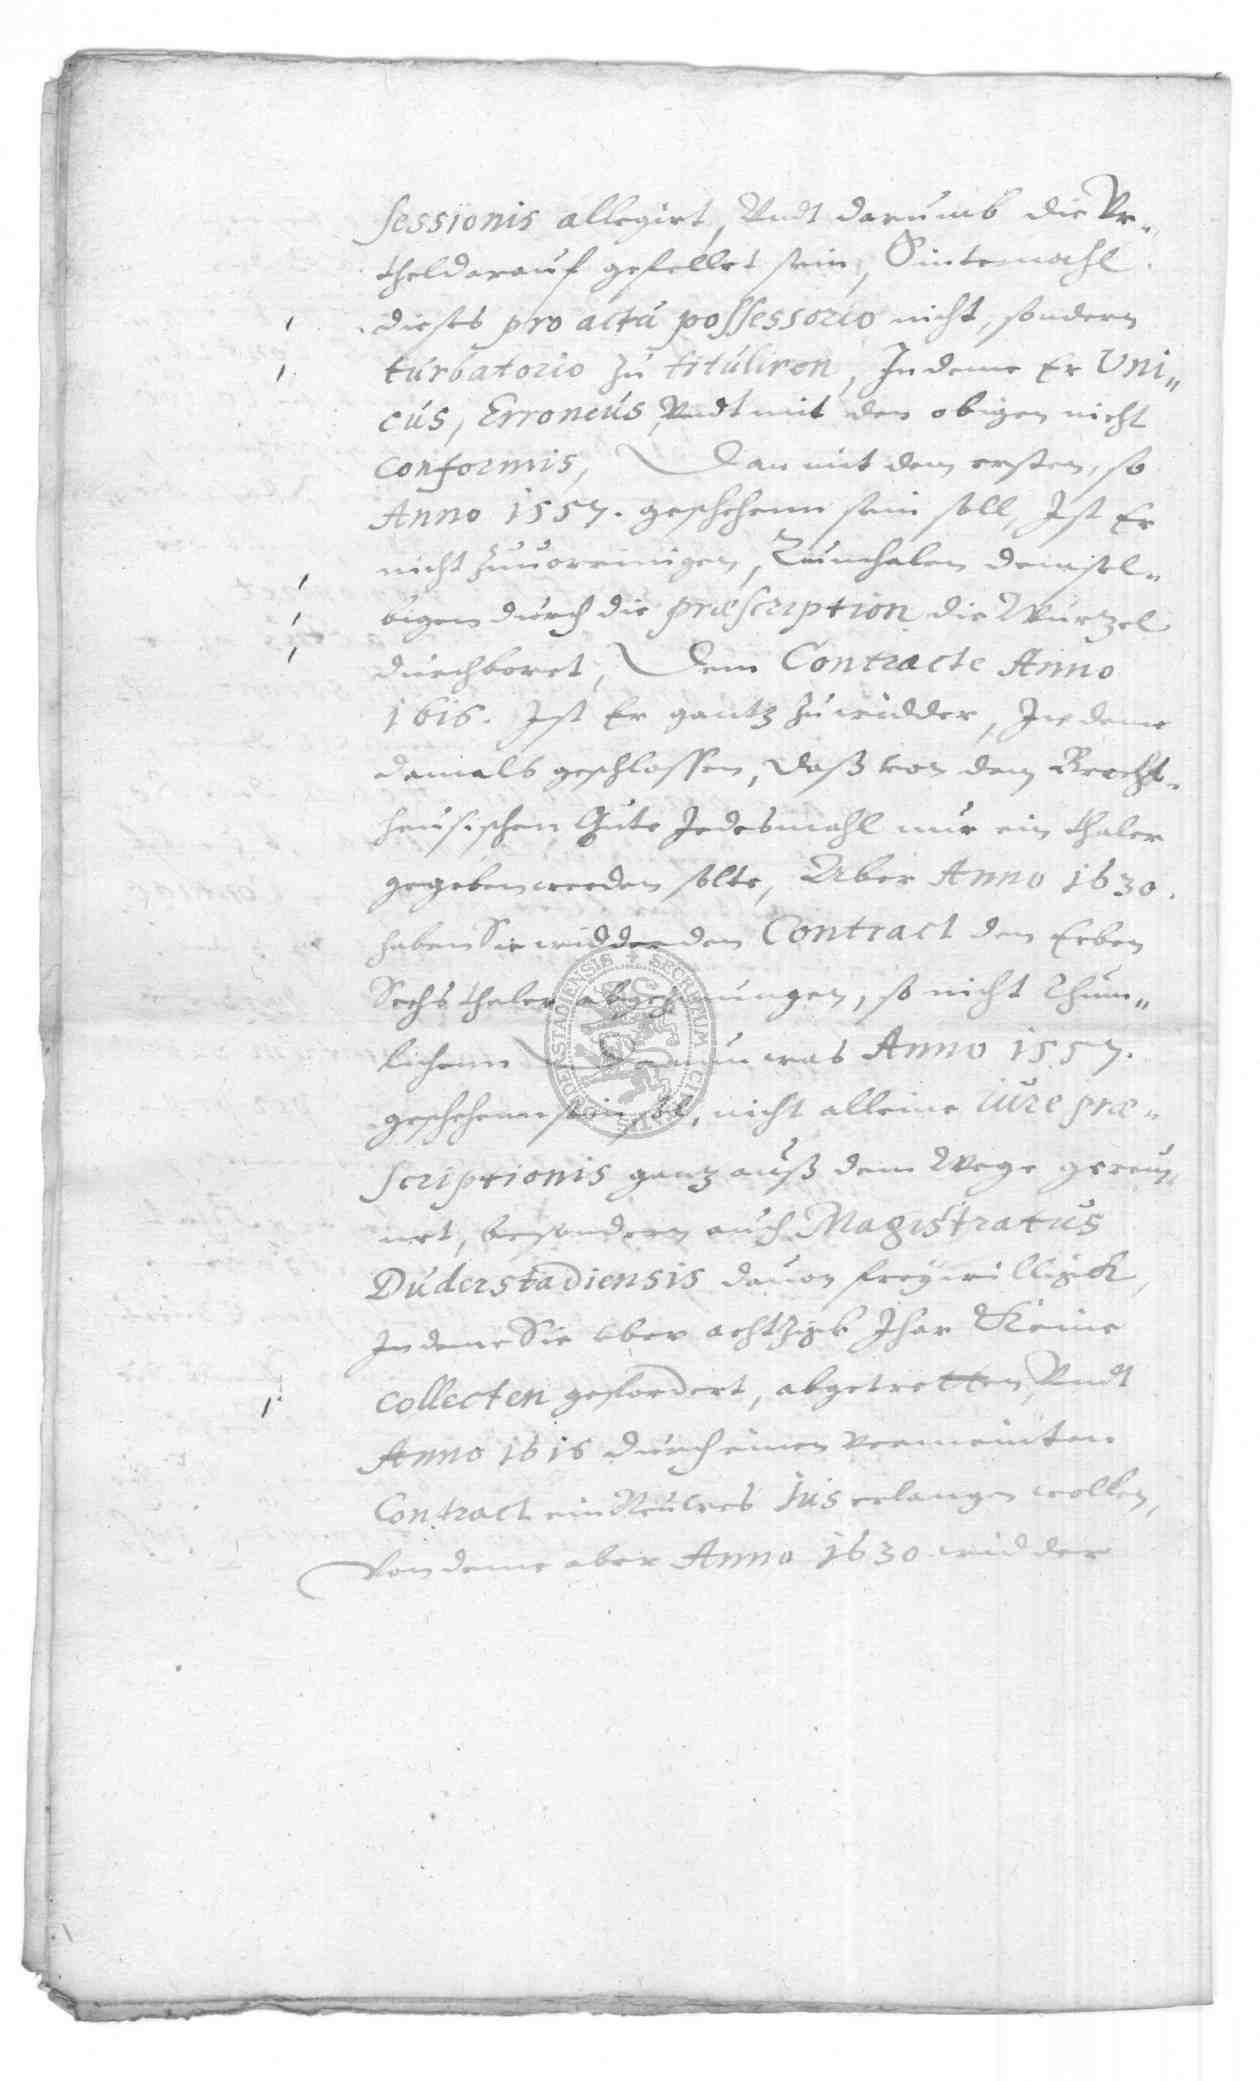 sessionis allegirt, Vndt darumb die Vr-
thel darauf gefellet sein, Sintemahl
dieses pro actu possessorio nicht, sondern
turbatorio zu tituliren, In deme Er Uni-
cus, Erroneus, Vndt mit den obigen nicht
conformis, Dan mit dem ersten, so
Anno 1557. geschehenn sein soll, Ist Er
nicht zuuoreinigen, Zumhalen demsel-
bigen durch die præscription die Wurtzel
durchboret, Dem Contracte Anno
1616. Ist Er gantz zuwidder, In deme
damals geschlossen, daß von dem Brecht-
heusischen Gute Jedesmahl nur ein thaler
gegeben werden solte, Aber Anno 1630.
haben Sie widder den Contract den Erben
Sechs thaler abgezwungen, so nicht Thun-
lichenn Dannu was Anno 1557.
geschehenn sein sol, nicht alleine iure præ-
scriptionis gantz auß dem Wege gereu-
met, besondern auch Magistratus
Duderstadiensis dauon freywilligk,
In deme Sie uber achtzigk Jhar Keine
collecten gefordert, abgetretten, Vndt
Anno 1616 durch einen vermeinten
Contract ein Neuwes Jus erlangen wollen,
Von deme aber Anno 1630 widder
SECRETUM CIVITATIS DUDERSTADIENSIS